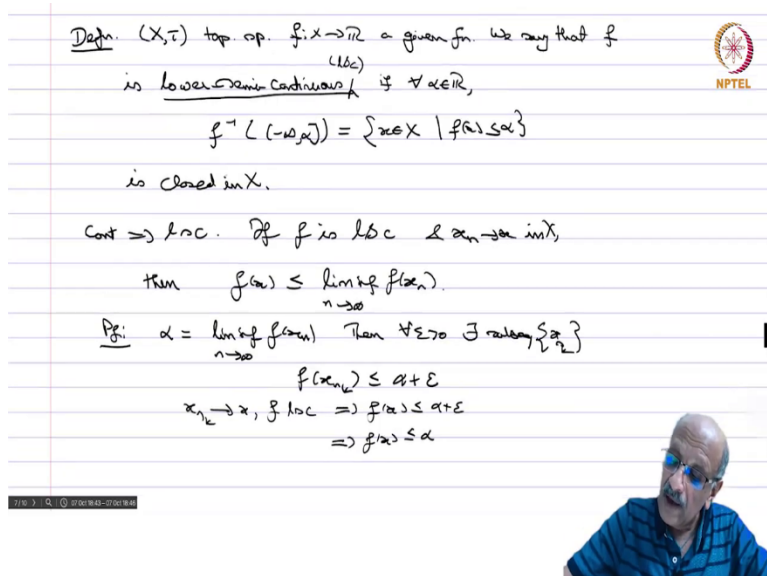 Defn. (X,τ) top. sp. f: X→ℝ a given fn. We say that f
(lsc)
is lower-semi continuous, if ∀ α∈ℝ,
f⁻¹((-∞,α]) = {x∈X | f(x) ≤ α}
is closed in X.
NPTEL
Cont ⇒ lsc. If f is lsc & xₙ→x in X,
then f(x) ≤ liminf f(xₙ).
n→∞
Pf: α = liminf f(xₙ) Then ∀ε>0 ∃ subseq {x_{n_k}}
n→∞
f(x_{n_k}) ≤ α+ε
x_{n_k}→x, f lsc ⇒ f(x) ≤ α+ε
⇒ f(x) ≤ α
7/10
07 Oct 18:43–07 Oct 18:46